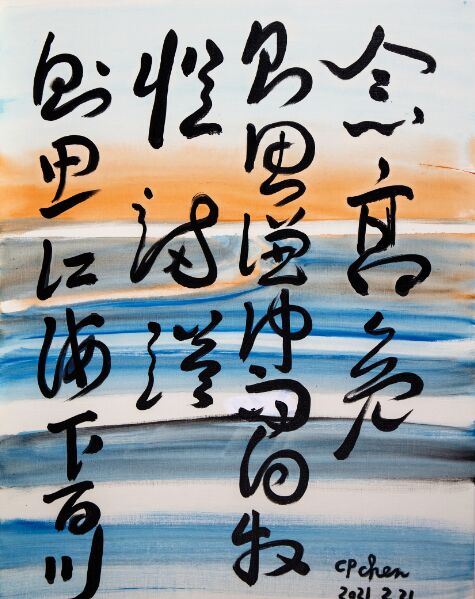 念高危
則思謙沖而自牧
懼滿溢
則思江海下百川
CP chen
2021.2.21